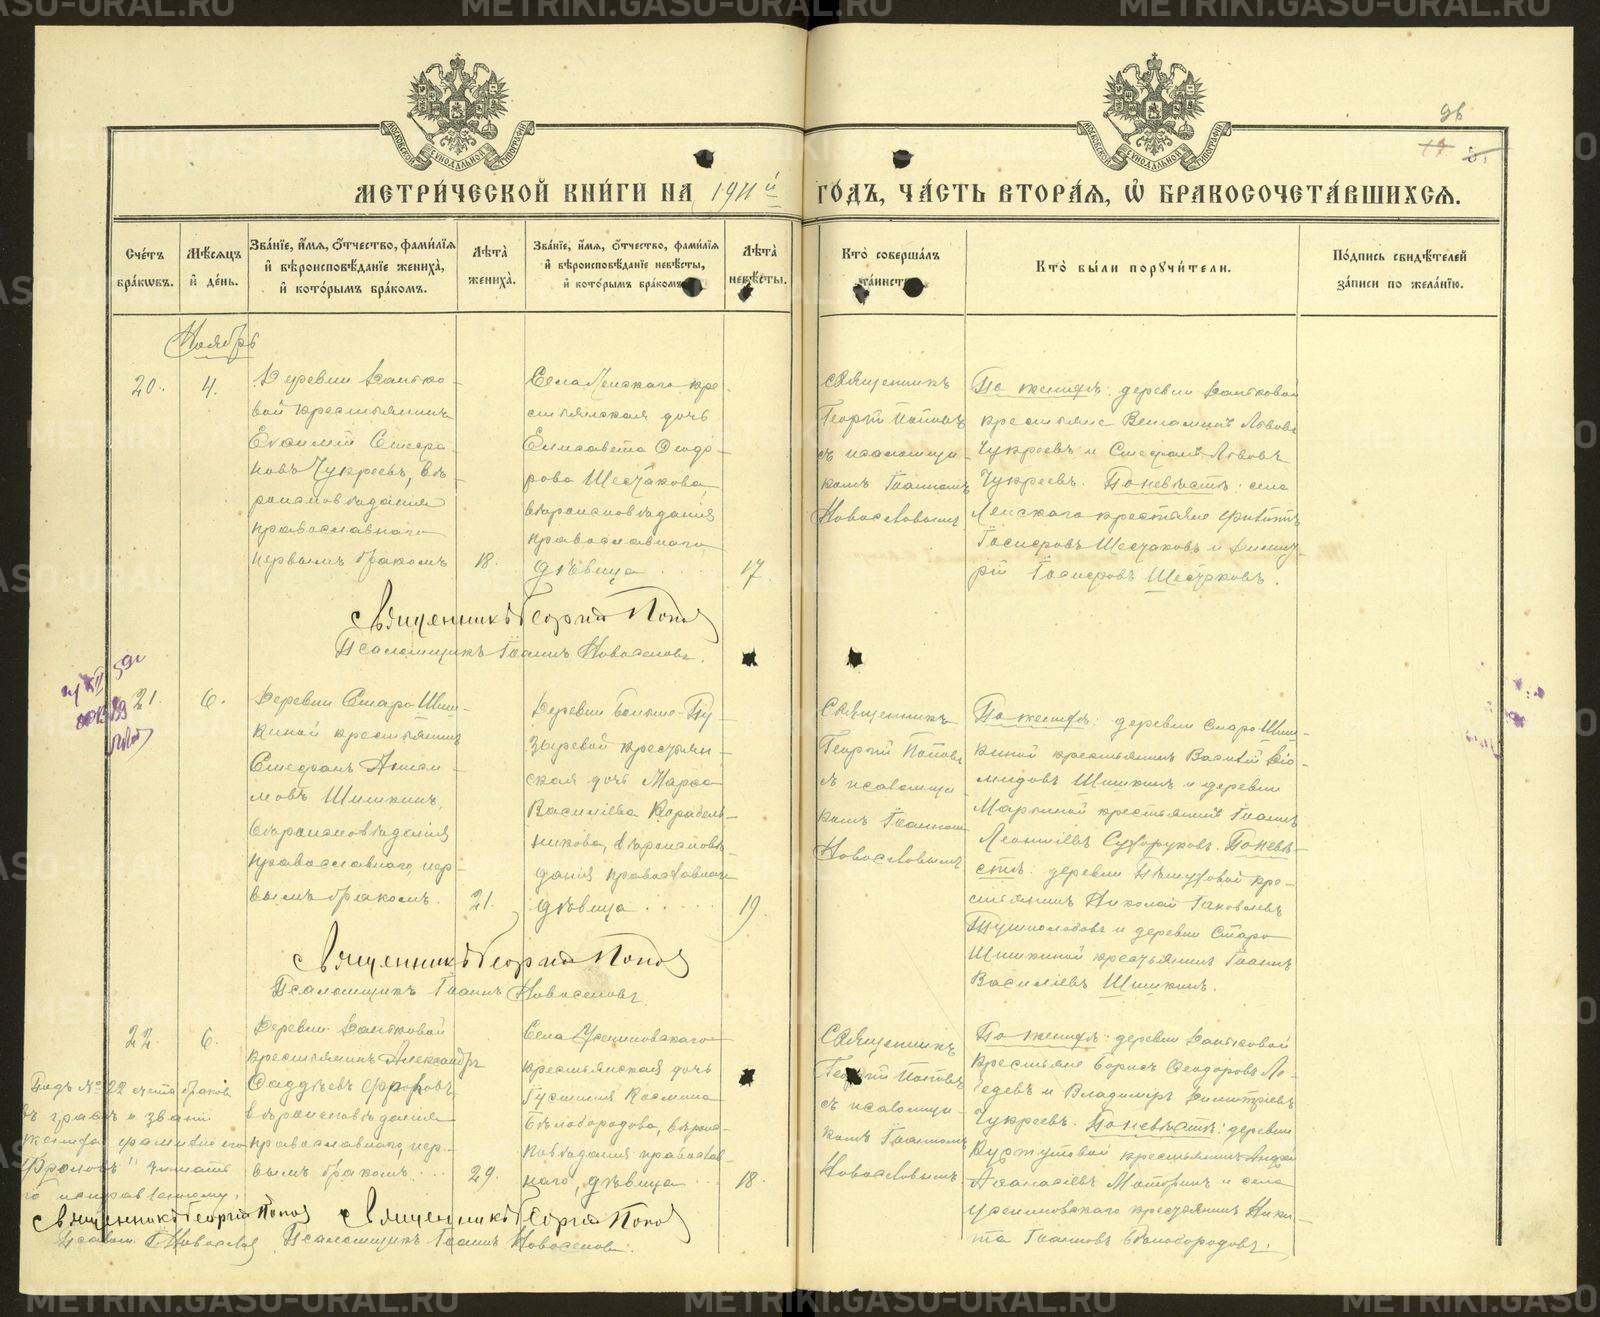 METRIKI.GASU-URAL.RU
96
МОСКОВСКОЙ СѴНОДАЛЬНОЙ ТИПОГРАФІИ
МОСКОВСКОЙ СѴНОДАЛЬНОЙ ТИПОГРАФІИ
МЕТРИ́ЧЕСКОЙ КНИ́ГИ НА 1911й ГО́ДЪ, ЧА́СТЬ ВТОРА́Я, Ѡ БРАКОСОЧЕТА́ВШИХСЯ.
Сче́тъ бра́кѡвъ.
Мѣ́сяцъ и҆ де́нь.
Зва́нїе, и҆́мя, ѻ҆́тчество, фами́лїя и҆ вѣроисповѣ́данїе жениха̀, и҆ кото́рымъ бра́комъ.
Лѣ́та̀ жениха̀.
Зва́нїе, и҆́мя, ѻ҆́тчество, фами́лїя и҆ вѣроисповѣ́данїе невѣ́сты, и҆ кото́рымъ бра́комъ.
Лѣ́та̀ невѣ́сты.
Кто̀ соверша́лъ та́инство.
Кто̀ бы́ли порꙋчи́тели.
По́дпись свидѣ́телей за́писи по жела́нїю.
Ноябрь
20.
4.
Деревни Данько-
вой крестьянинъ
Евсимій Стефа-
новъ Чукреевъ, вѣ-
роисповѣданія
православнаго
первымъ бракомъ
18.
Села Ленскаго кре-
стьянская дочь
Елисавета Ѳеодо-
рова Шестакова,
вѣроисповѣданія
православнаго
дѣвица
17.
Священникъ
Георгій Поповъ
съ псаломщи-
комъ Іоанномъ
Новоселовымъ
По женихѣ: деревни Даньковой
крестьяне Веніаминъ Львовъ
Чукреевъ и Стефанъ Львовъ
Чукреевъ. По невѣстѣ: села
Ленскаго крестьяне Филиппъ
Іосифовъ Шестаковъ и Димит-
рій Іосифовъ Шестаковъ.
Священникъ Георгій Поповъ
Псаломщикъ Іоаннъ Новоселовъ.
21.
6.
Деревни Старо-Шиш-
киной крестьянинъ
Стефанъ
Шишкинъ,
вѣроисповѣданія
православнаго, пер-
вымъ бракомъ.
21.
Деревни Больше-Пу-
зыревой крестьян-
ская дочь Марѳа
Василіева Корабель-
никова, вѣроисповѣ-
данія православнаго
дѣвица
19.
Священникъ
Георгій Поповъ
съ псаломщи-
комъ Іоанномъ
Новоселовымъ
По женихѣ: деревни Старо-Шиш-
киной крестьянинъ Василій Діо-
мидовъ Шишкинъ и деревни
Марьиной крестьянинъ Іоаннъ
Леонтіевъ Сухоруковъ. По невѣ-
стѣ: деревни крe-
стьянинъ Николай Іаковлевъ
Пустолодовъ и деревни Старо
Шишкиной крестьянинъ Іоаннъ
Василіевъ Шишкинъ.
Священникъ Георгій Поповъ
Псаломщикъ Іоаннъ Новоселовъ.
22.
6.
Деревни Даньковой
крестьянинъ Александръ
Ѳаддѣевъ Фроловъ,
вѣроисповѣданія
православнаго, пер-
вымъ бракомъ.
29.
Села Усениновскаго
крестьянская дочь
Іустинія Космина
Бѣлобородова, вѣрои-
повѣданія православ-
наго, дѣвица
18.
Священникъ
Георгій Поповъ
съ псаломщи-
комъ Іоанномъ
Новоселовымъ.
По женихѣ: деревни Даньковой
крестьяне Борисъ Ѳеодоровъ Ле-
бедевъ и Владиміръ Димитріевъ
Чукреевъ. По невѣстѣ: деревни
крестьянинъ Андрей
Аѳанасіевъ Маторинъ и села
Усениновскаго крестьянинъ Ники-
та Іоанновъ Бѣлобородовъ.
Подъ № 22 счета браковъ
въ графѣ о званіи
жениха фамилію его
„Фроловъ“ читать
по исправленному.
Священникъ Георгій Поповъ
Псалом. І. Новоселов
Священникъ Георгій Поповъ
Псаломщикъ Іоаннъ Новоселовъ.